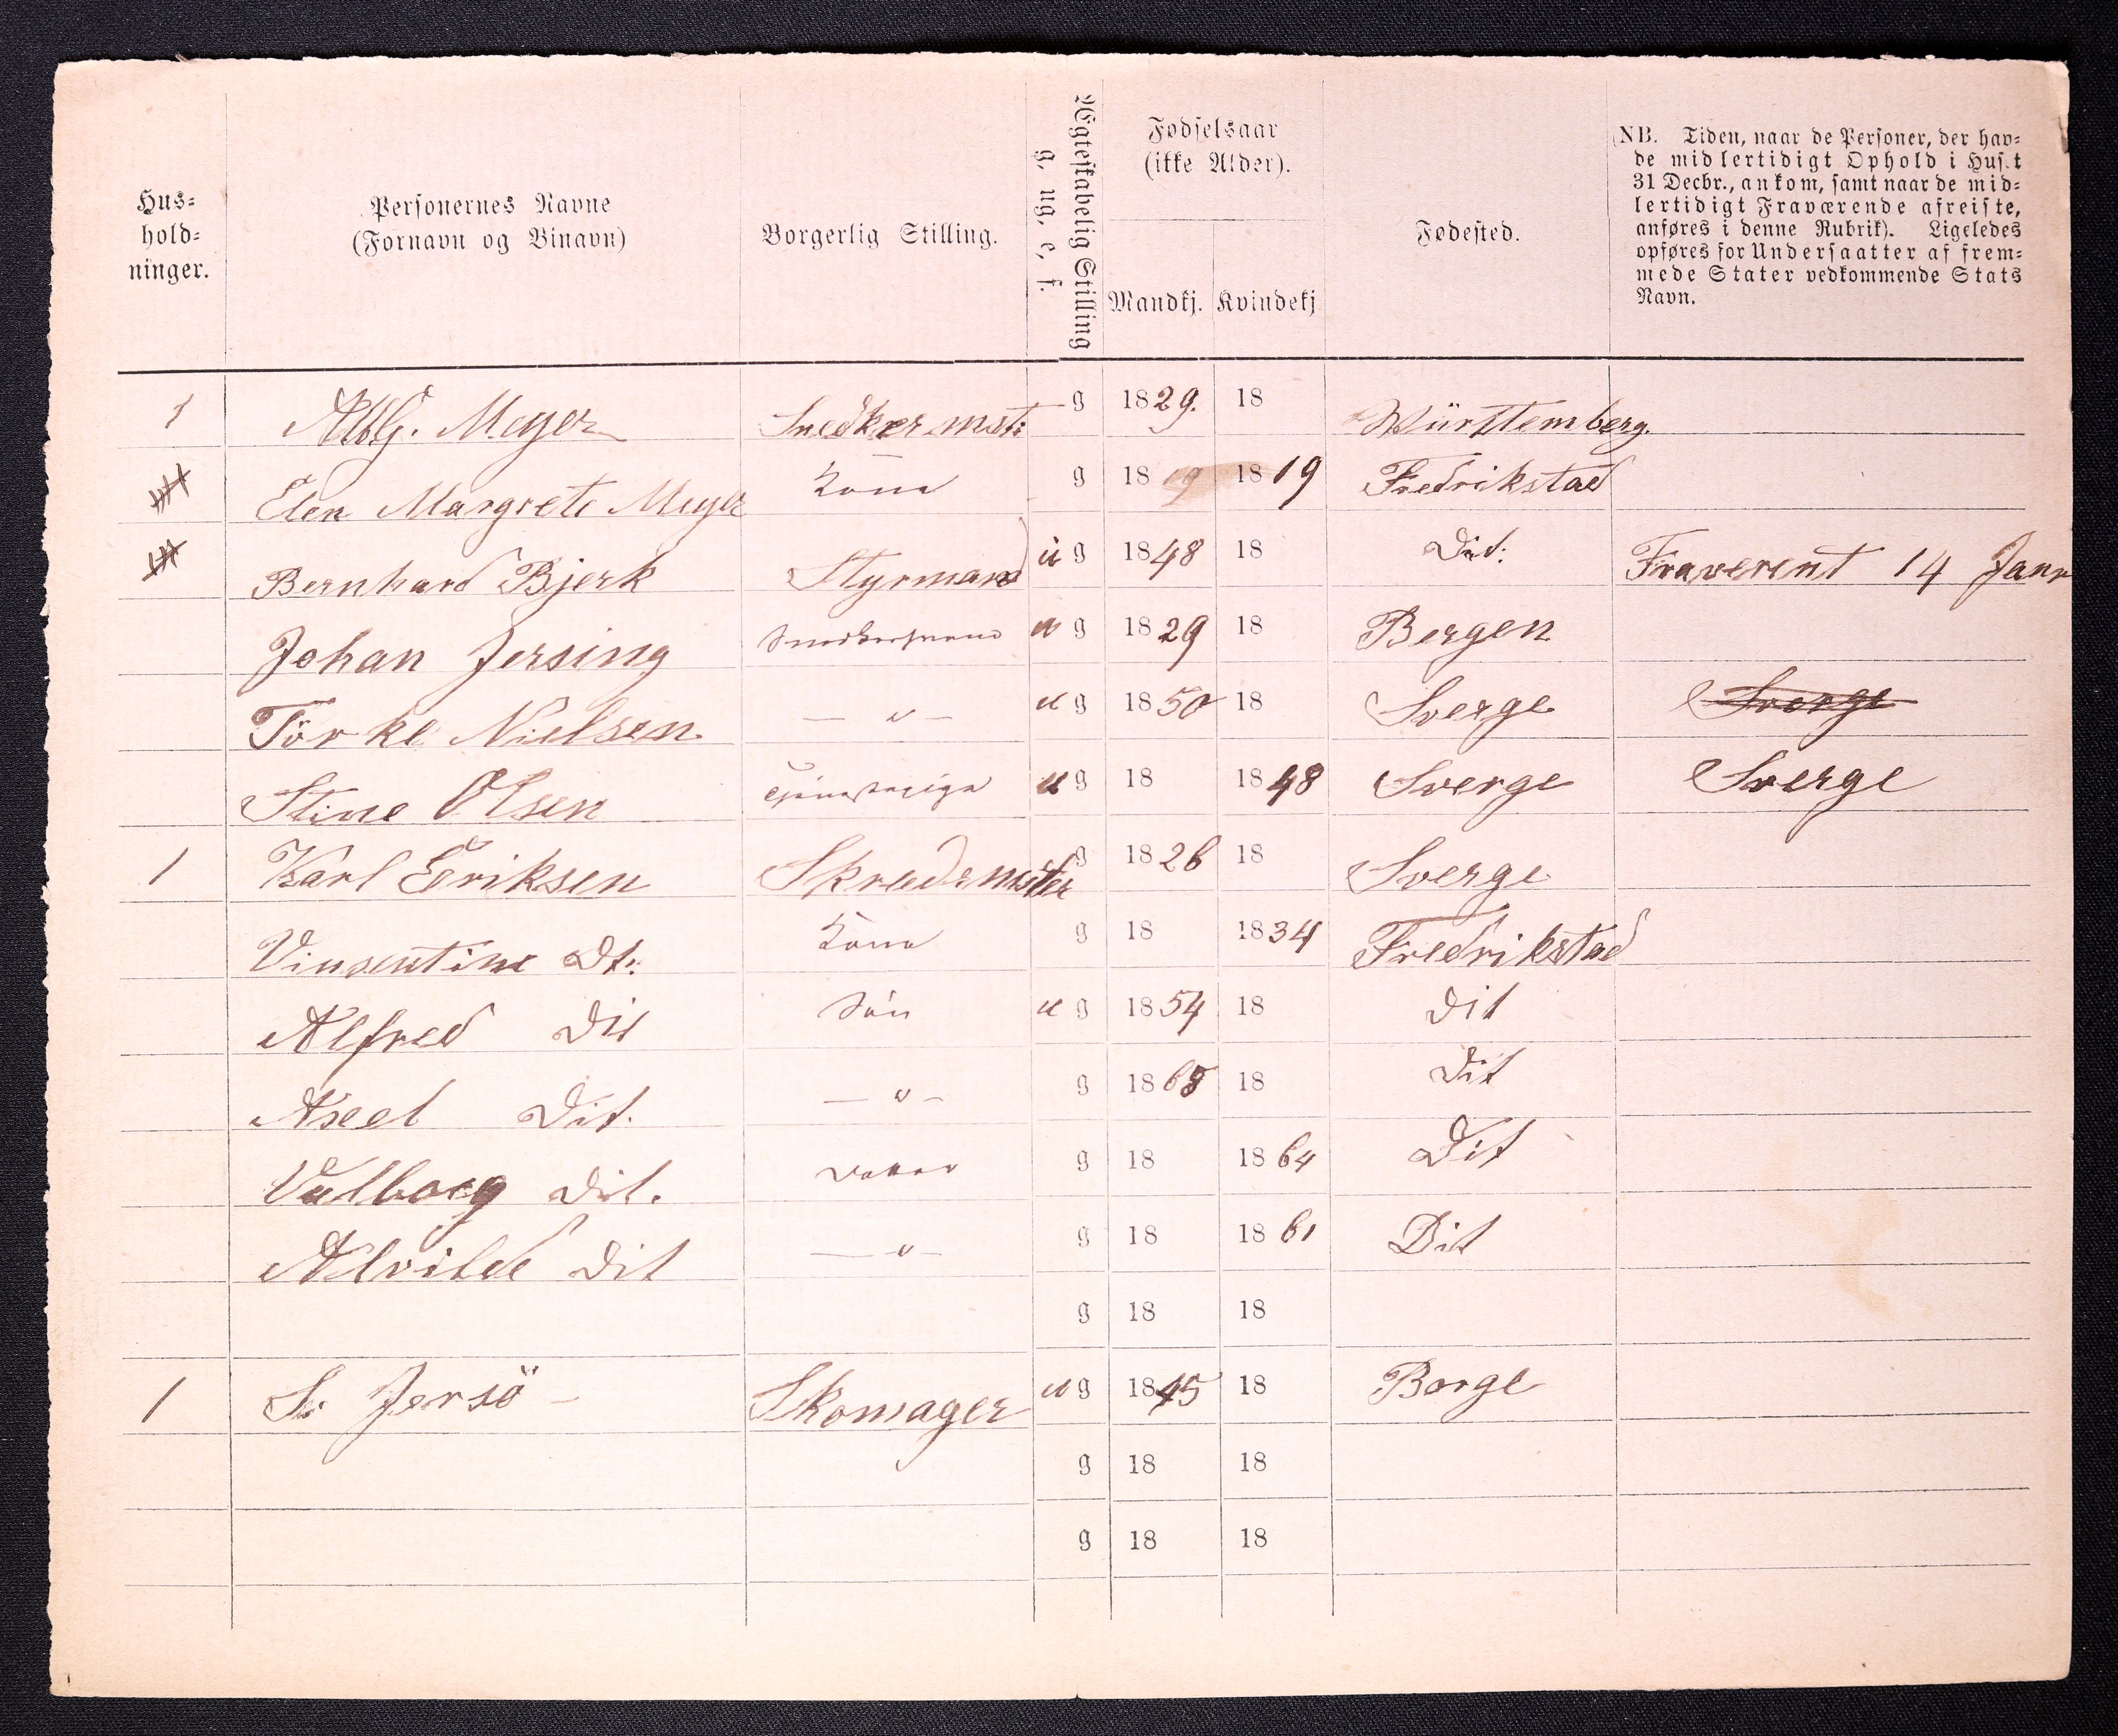 Hus-
hold-
ninger.
Personernes Navne
(Fornavn og Binavn)
Borgerlig Stilling.
Ægteskabelig Stilling
g, ug, e, f.
Fødselsaar
(ikke Alder).
Mandkj. Kvindekj
Fødested.
(NB. Tiden, naar de Personer, der hav-
de midlertidigt Ophold i Hus.t
31 Decbr., ankom, samt naar de mid-
lertidigt Fraværende afreiste,
anføres i denne Rubrik). Ligeledes
opføres for Undersaatter af frem-
mede Stater vedkommende Stats
Navn.
1 Meyer Snedkermst: g 1829. 18 Württemberg.
Elen Margrete Meyer Kone g 1819 1819 Fredrikstad
Bernhard Bjerk Styrmand ug 1848 18 Dit: Fraverent 14 Janr
Johan Jersing Snedkersvend ug 1829 18 Bergen
Törkel Nielsen — " — ug 1850 18 Sverge Sverge
Stine Olsen Tjenestepige ug 18 1848 Sverge Sverge
1 Karl Eriksen Skredrmster g 1826 18 Sverge
Vinsentine Dt: Kone g 18 1834 Fredrikstad
Alfred Dit Sön ug 1854 18 Dit
Axel Dit. — " — g 1868 18 Dit
Valborg Dit. Datter g 18 1864 Dit
Alvilde Dit — " — g 18 1861 Dit
g 18 18
1 Jersö — Skomager ug 1845 18 Borge
g 18 18
g 18 18